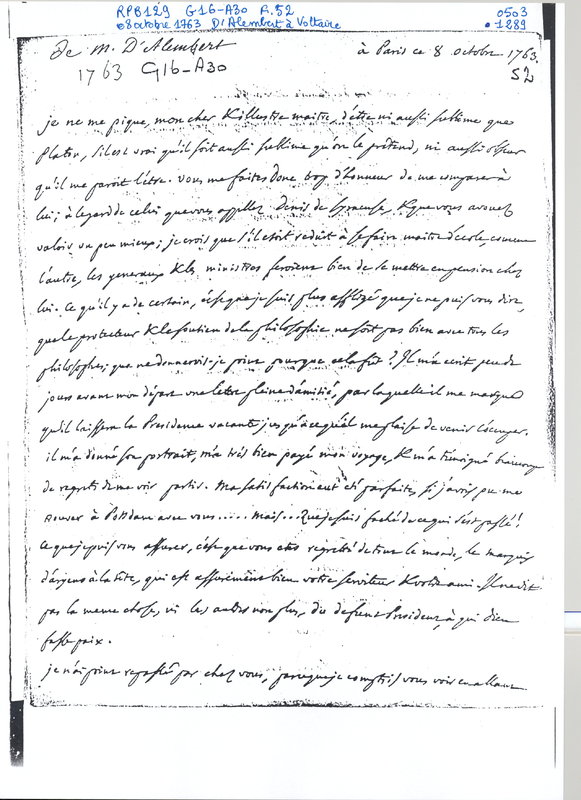 RPB129 G16-A30 F.52
08 octobre 1763 D'Alembert à Voltaire
0503
1289
De m. D'Alembert
à Paris ce 8 octobre 1763.
1763 G16-A30
52
je ne me pique, mon cher & illustre maitre, d'être ni aussi sublime que
Platon, s'il est vrai qu'il soit aussi sublime qu'on le prétend, ni aussi obscur
qu'il me paroit l'être. vous me faites donc trop d'honneur de me comparer à
lui; à l'egard de celui que vous appellez Denis de Syracuse, & que vous avouez
valoir un peu mieux; je crois que s'il étoit réduit à se faire maitre d'école, comme
l'autre, les generaux & les ministres feroient bien de se mettre en pension chez
lui. ce qu'il y a de certain, c'est que je suis plus affligé que je ne puis vous dire,
que le protecteur & le soutien de la philosophie ne soit pas bien avec tous les
philosophes; que ne donnerois-je point pour que cela fut? Il m'a écrit peu de
jours avant mon départ une lettre pleine d'amitié, par laquelle il me marque
qu'il laissera la Presidence vacante jusqu'à ce qu'il me plaise de venir l'occuper.
il m'a donné son portrait, m'a très bien payé mon voyage, & m'a témoigné beaucoup
de regrets de me voir partir. Ma satisfaction eut été parfaite, si j'avois pu me
trouver à Potsdam avec vous..... Mais... que je suis faché de ce qui s'est passé!
ce que je puis vous assurer, c'est que vous etes regretté de tout le monde, le marquis
d'argens à la tête, qui est assurément bien votre serviteur & votre ami. Il ne dit
pas la meme chose, ni les autres non plus, du defunt President, à qui Dieu
fasse paix.
je n'ai point repassé par chez vous, parceque je comptois vous voir en allant